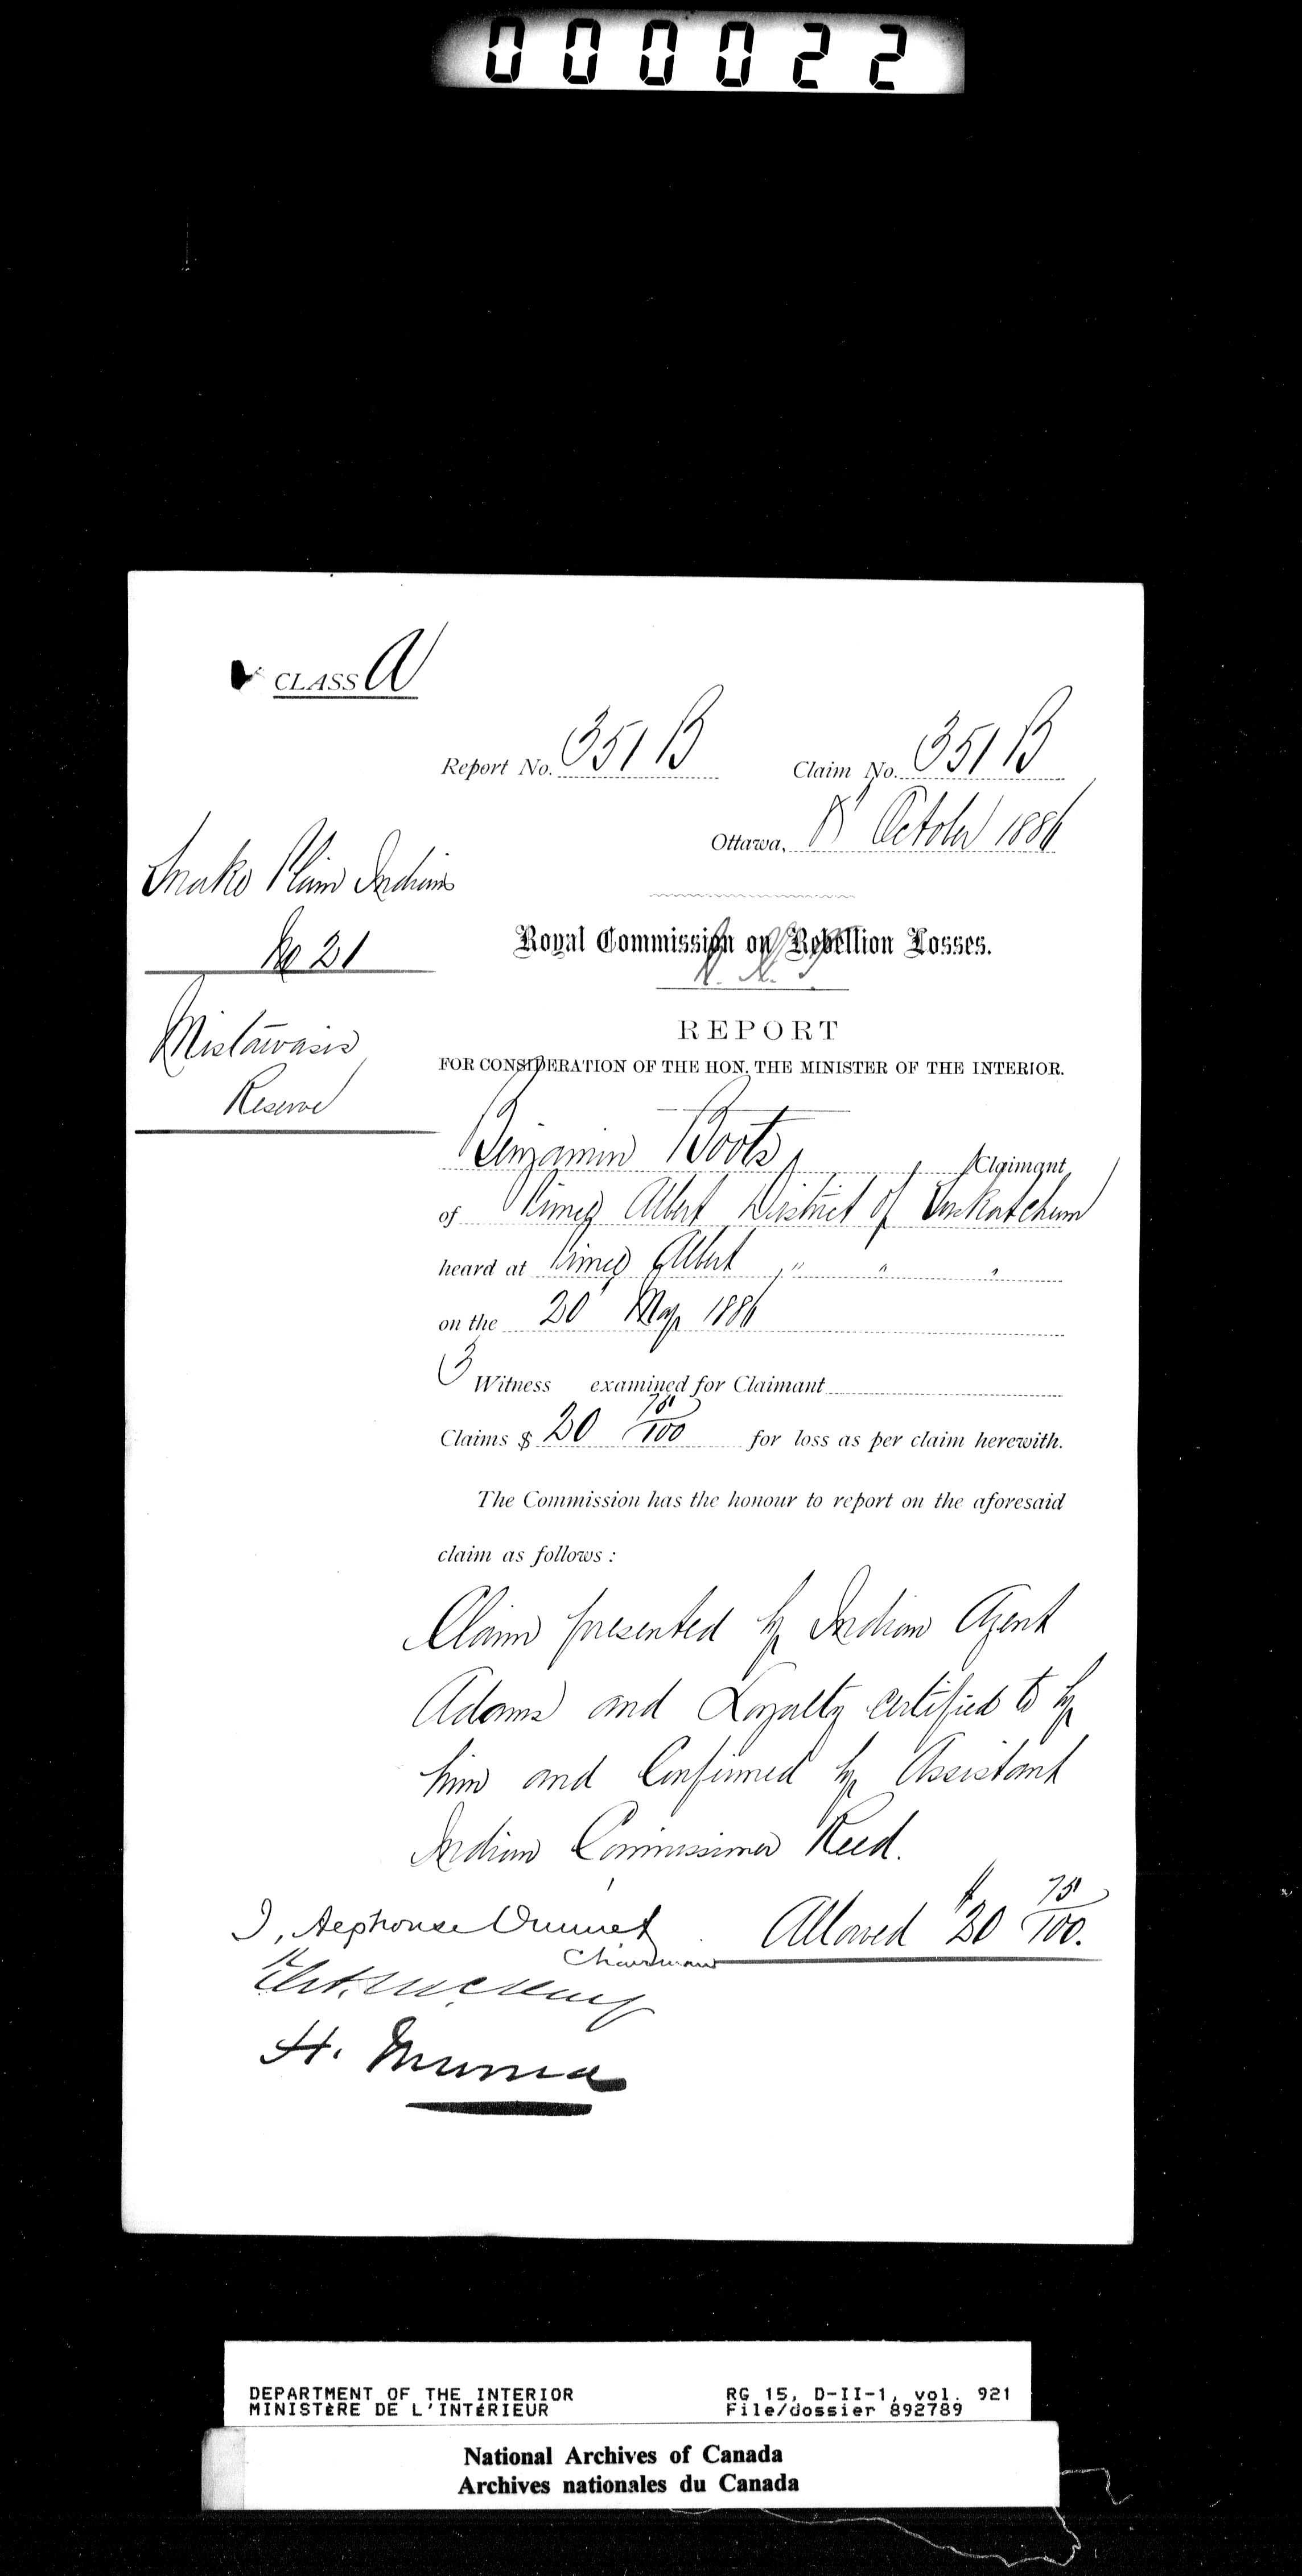 000022
CLASS A
Report No. 351 B Claim No. 351 B
Ottawa, 8 October 1886
Snake Plain Indians
No 21
Mistawasis
Reserve
Royal Commission on Rebellion Losses.
REPORT
FOR CONSIDERATION OF THE HON. THE MINISTER OF THE INTERIOR.
Benjamin Boots, Claimant
of Prince Albert District of Saskatchewan
heard at Prince Albert " " "
on the 20 May 1886
3 Witness examined for Claimant
Claims $ 20 75/100 for loss as per claim herewith.
The Commission has the honour to report on the aforesaid
claim as follows :
Claim presented by Indian Agent
Adams and Loyalty certified to by
him and Confirmed by Assistant
Indian Commissioner Reed.
Allowed $20 75/100.
J, Alphonse Ouimet
Chairman
H. Muma
DEPARTMENT OF THE INTERIOR
MINISTÈRE DE L'INTÉRIEUR
RG 15, D-II-1, vol. 921
File/dossier 892789
National Archives of Canada
Archives nationales du Canada